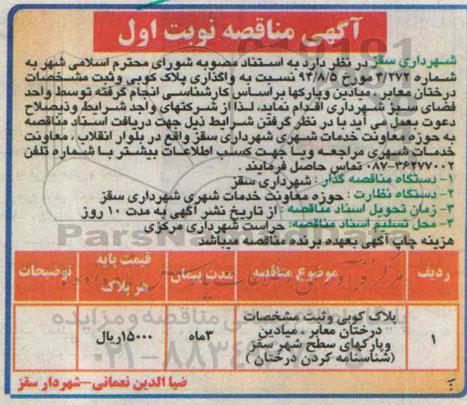 آگهی مناقصه نوبت اول
شهرداری سقز در نظر دارد به استناد مصوبه شورای محترم اسلامی شهر به
شماره ۴/۲۷۲ مورخ ۹۴/۸/۵ نسبت به واگذاری پلاک کوبی وثبت مشخصات
درختان معابر ، میادین وپارکها براساس کارشناسی انجام گرفته توسط واحد
فضای سبز شهرداری اقدام نماید، لذا از شرکتهای واجد شرایط وذیصلاح
دعوت بعمل می آید با در نظر گرفتن شرایط ذیل جهت دریافت اسناد مناقصه
به حوزه معاونت خدمات شهری شهرداری سقز واقع در بلوار انقلاب ، معاونت
خدمات شهری مراجعه ویا جهت کسب اطلاعات بیشتر با شماره تلفن
۰۸۷-۳۶۲۷۷۰۰۲ تماس حاصل فرمایند .
۱- دستگاه مناقصه گذار : شهرداری سقز
۲- دستگاه نظارت : حوزه معاونت خدمات شهری شهرداری سقز
۳- زمان تحویل اسناد مناقصه : از تاریخ نشر آگهی به مدت ۱۰ روز
۴- محل تسلیم اسناد مناقصه: حراست شهرداری مرکزی
هزینه چاپ آگهی بعهده برنده مناقصه میباشد
ردیف موضوع مناقصه مدت پیمان قیمت پایه هر پلاک توضیحات
۱ پلاک کوبی وثبت مشخصات درختان معابر ، میادین وپارکهای سطح شهر سقز (شناسنامه کردن درختان ) ۳ماه ۱۵۰۰۰ریال
ضیا الدین نعمانی-شهردار سقز